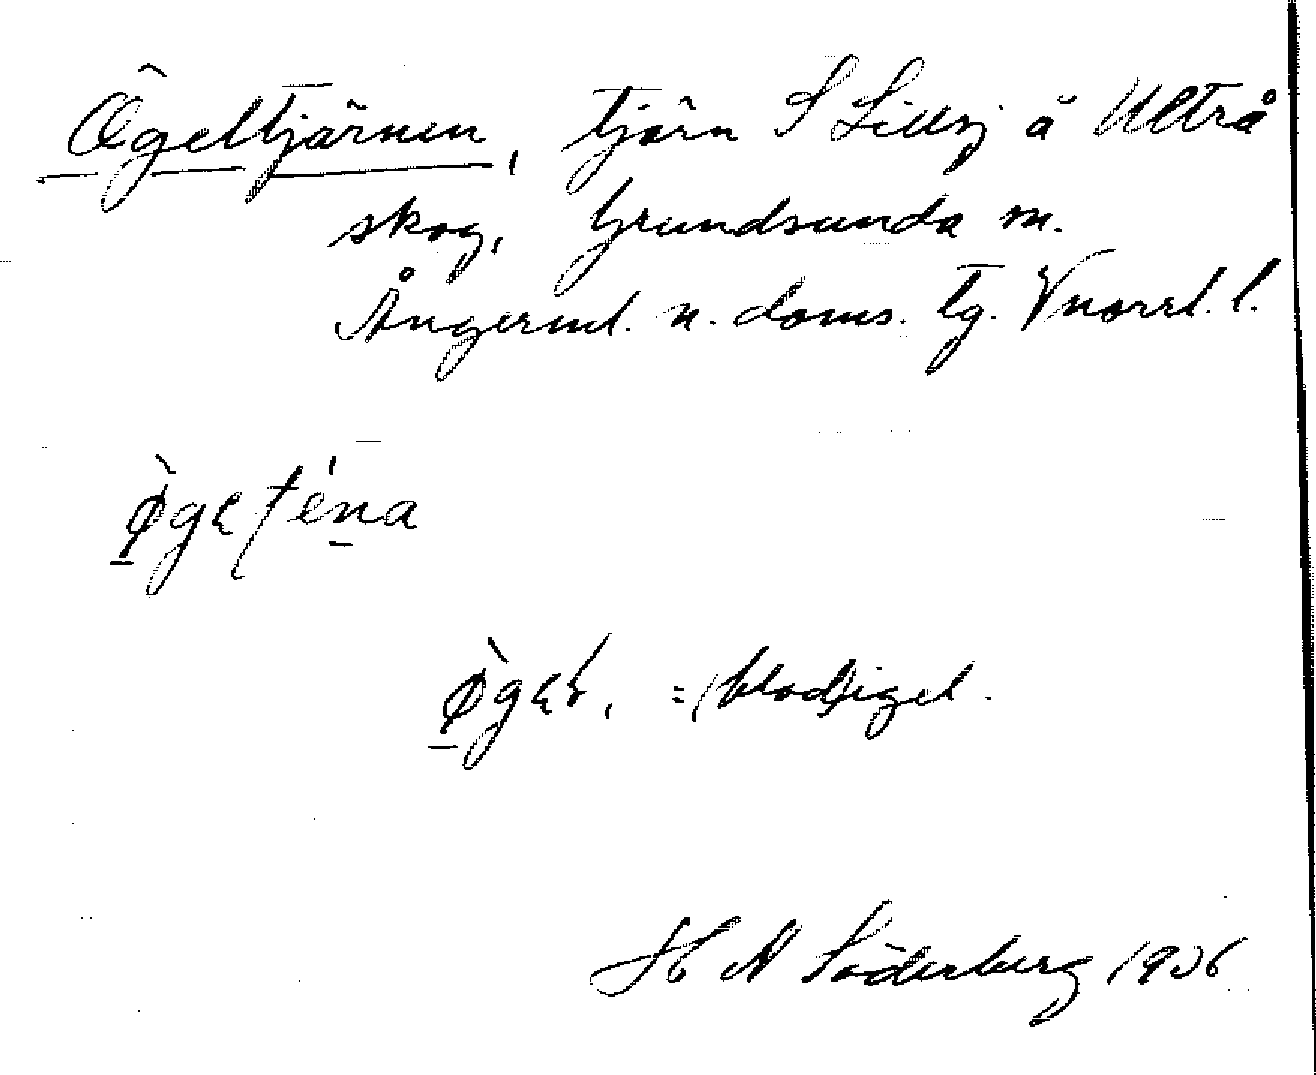 Ögeltjärnen, tjärn S Lillsj å Ultrå
skog, Grundsunda sn.
Ångerml. n. doms. tg. Vnorrl. l.
= (blod)igel.
H A Söderberg 1936